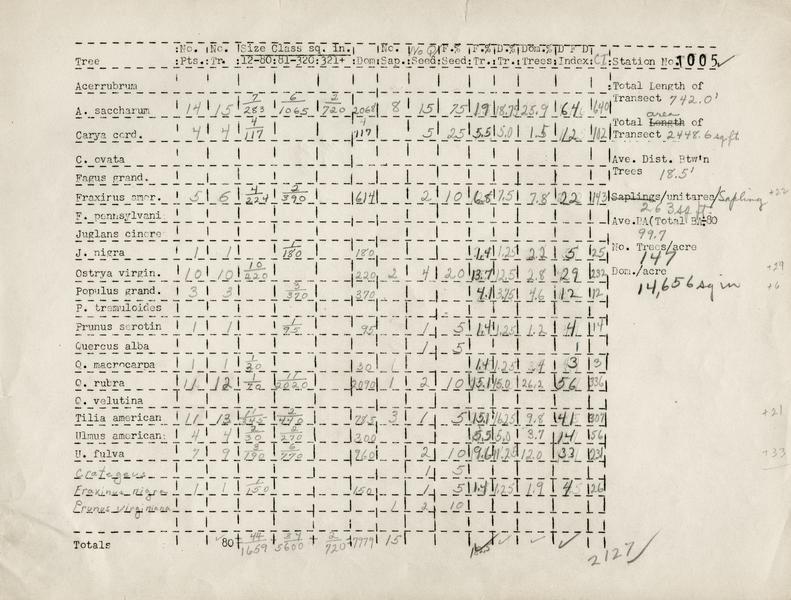 No. No. Size Class sq. In. No. No Q F.% F.% D.% Dom.% D F D
Tree Pts. Tr. 12-80 81-320 321+ Dom Sap. Seed Seed Tr. Tr. Trees Index CI Station No. 1005 ✓
Acerrubrum Total Length of
Transect 742.0'
A. saccharum 14 15 7/283 6/1065 2/720 2068 8 15 75 19 18.75 25.9 64 640
area
Total Length of
Carya cord. 4 4 4/117 117 5 25 5.5 5.0 1.5 12 102 Transect 2448.6 sq ft
C. ovata Ave. Dist. Btw'n
Fagus grand. Trees 18.5'
Fraxirus amer. 5 6 4/224 5/390 614 2 10 6.8 7.5 7.8 22 143 Saplings/unitarea/Sapling +22
263 sq ft
F. pennsylvani Ave.DA(Total BA÷80
Juglans cinere 99.7
J. nigra 1 1 1/180 180 1.4 1.25 2.2 5 25 No. Trees/acre
147
Ostrya virgin. 10 10 10/220 220 2 4 20 13.7 12.5 2.8 29 232 Dom./acre +29
Populus grand. 3 3 3/370 370 4.1 3.75 4.6 12 12 14,656 sq in +6
P. tremuloides
Prunus serotin 1 1 1/95 95 1 5 1.4 1.25 1.2 4 14
Quercus alba 1 5 1
Q. macrocarpa 1 1 1/30 30 1 1.4 1.25 .4 3 3
Q. rubra 11 12 1/20 11/2020 2090 1 2 10 15.1 15.0 26.2 56 336
Q. velutina
Tilia american 11 13 785 3 1 5 15.1 16.25 9.8 41 307 +21
Ulmus american 4 4 2/30 2/270 300 5.5 5.0 3.7 14 56
U. fulva 7 9 3/190 6/770 960 2 10 9.6 11.25 12.0 33 231 +33
Crataegus 1 5
Fraxinus nigra 1 1 1/150 150 1 5 1.4 1.25 1.9 4 26
Prunus virginiana 1 2 10
Totals 80 44/1659 + 34/5600 + 2/720 7979 15 ✓ ✓ ✓
2127